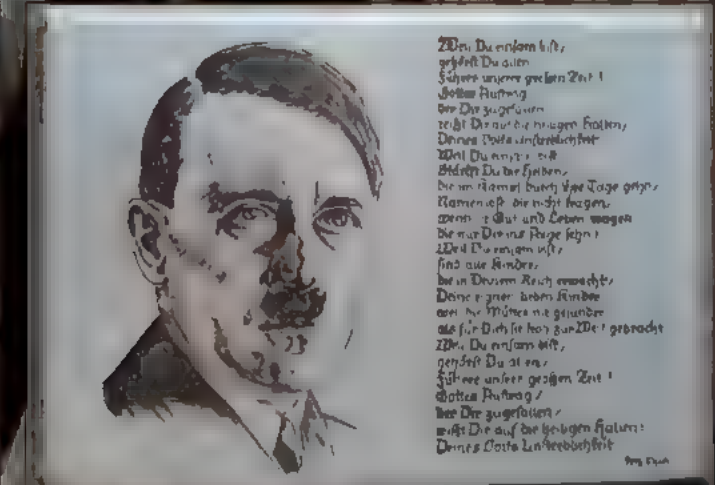 Weil Du einsam bist,
gehörst Du allen
Führer unserer großen Zeit!
Gottes Auftrag
der Dir zugefallen
Dir auf die heiligen
Deines Volks Unsterblichkeit
Weil Du einsam bist
Du die Helden,
die im Kampf durch ihre Tage gehn,
die nicht fragen,
wenn Gut und Leben wagen
die nur Dir ins Auge sehn!
Weil Du einsam bist,
sind alle Kinder,
die in Deinem Reich erwacht,
Deine eignen lieben Kinder
die Mütter
als für Dich sie zur Welt gebracht
Weil Du einsam bist,
gehörst Du allen,
Führer unserer großen Zeit!
Gottes Auftrag,
der Dir zugefallen,
Dir auf die heiligen
Deines Volks Unsterblichkeit